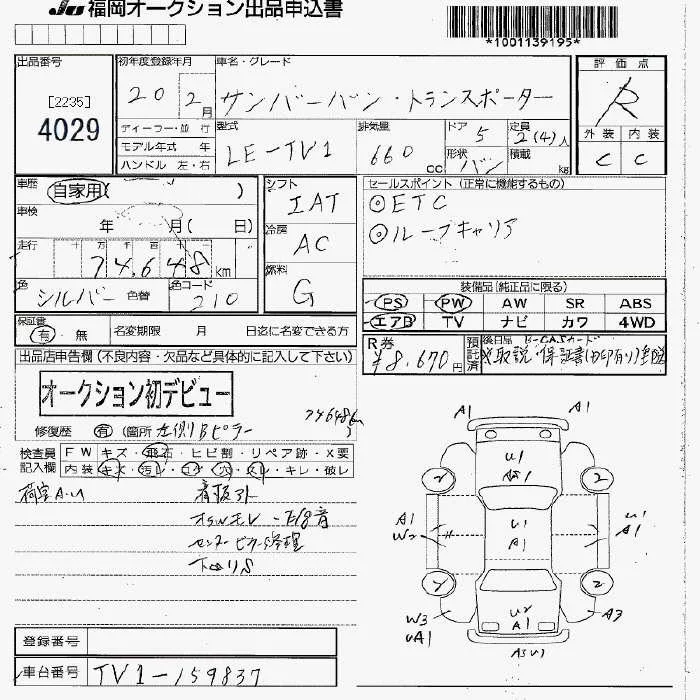 JU 福岡オークション出品申込書
*1001139195*
出品番号
[2235]
4029
初年度登録年月
20 2月
車名・グレード
サンバーバン・トランスポーター
評価点
R
外装 内装
C C
ディーラー・並行
モデル年式 年
ハンドル 左・右
型式
LE-TV1
排気量
660cc
ドア
5
形状
バン
定員
2(4)人
積載
kg
車歴
自家用( )
車検
年 月( 日)
走行
十 万 千 百 十
74,648km
色
シルバー 色替
色コード
210
シフト
IAT
冷房
AC
燃料
G
セールスポイント(正常に機能するもの)
◎ETC
◎ルーフキャリア
装備品(純正品に限る)
PS PW AW SR ABS
エアB TV ナビ カワ 4WD
保証書
有・無
名変期限 月 日迄に名変できる方
R券
¥8,670円
預託済
後日品 B-CASカード
取説・保証書
出品店申告欄(不良内容・欠品など具体的に記入して下さい)
オークション初デビュー
修復歴 有(箇所 左側Bピラー )
検査員記入欄
FW キズ・飛石・ヒビ割・リペア跡・X要
内装 キズ・汚レ・コゲ・穴・スレ・キレ・破レ
荷室A.U
看板アト
センターピラー修理
下回りS
A1 A1
U1
A1
2 2
A1
W2
U1
A1
U1
A1
2 2
W3
UA1
U2
A1
A3
登録番号
車台番号
TV1-159837